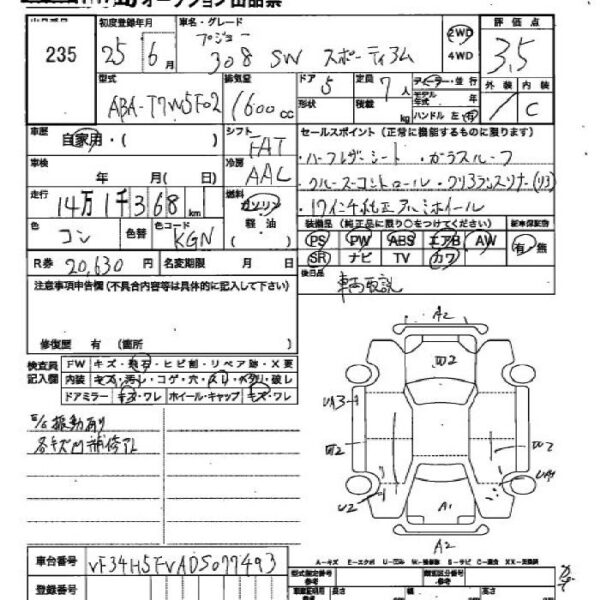 オークション出品票
初度登録年月 車名・グレード 評価点
235 25年 6月 プジョー 308 SW スポーティアム 2WD 4WD 3.5
型式 排気量 ドア 5 定員 7人 ディーラー・並行 外装 内装
ABA-T7W5F02 1600cc 形状 積載 kg モデル年式 年 ハンドル 左 右 C
車歴 自家用・( ) シフト FAT セールスポイント(正常に機能するものに限ります)
車検 年 月(日) 冷房 AAC ・ハーフレザーシート ・ガラスルーフ
・クルーズコントロール ・クリアランスソナー(リヤ)
走行 14万1千368km 燃料 ガソリン 軽・油 ・17インチ純正アルミホイール
色 コン 色替 色コード KGN 装備品(純正品に限り○をつけてください) 新車保証書
PS PW ABS エアB AW 有・無
SR ナビ TV カワ
R券 20,630円 名変期限 月 日 後日品
車両取説
注意事項申告欄(不具合内容等は具体的に記入して下さい)
修復歴 有(箇所 )
検査員記入欄 FW キズ・飛石・ヒビ割・リペア跡・X要
内装 キズ・汚れ・コゲ・穴・スレ・ヘタリ・破レ
ドアミラー キズ・ワレ ホイール・キャップ キズ・ワレ
E/G振動あり
各キズ凹補修アト
A2
凹2
凹2
U2
A1
A2
A-キズ E-エクボ U-凹み W-補修跡 S-サビ C-腐食 XX-交換済
車台番号 VF34H5FVADS077493
登録番号
型式指定番号 参考 類別区分番号 参考
長さ 幅 高さ